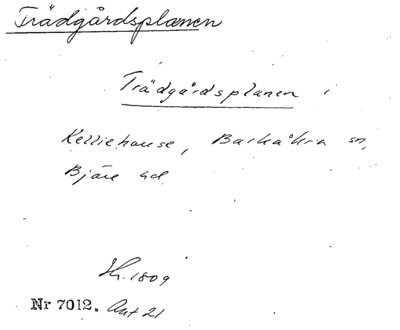 Trädgårdsplanen
Trädgårdsplanen i
Kelliehouse, Barkåkra sn,
Bjäre hd
Hr. 1809
Nr 7012. Ant 21